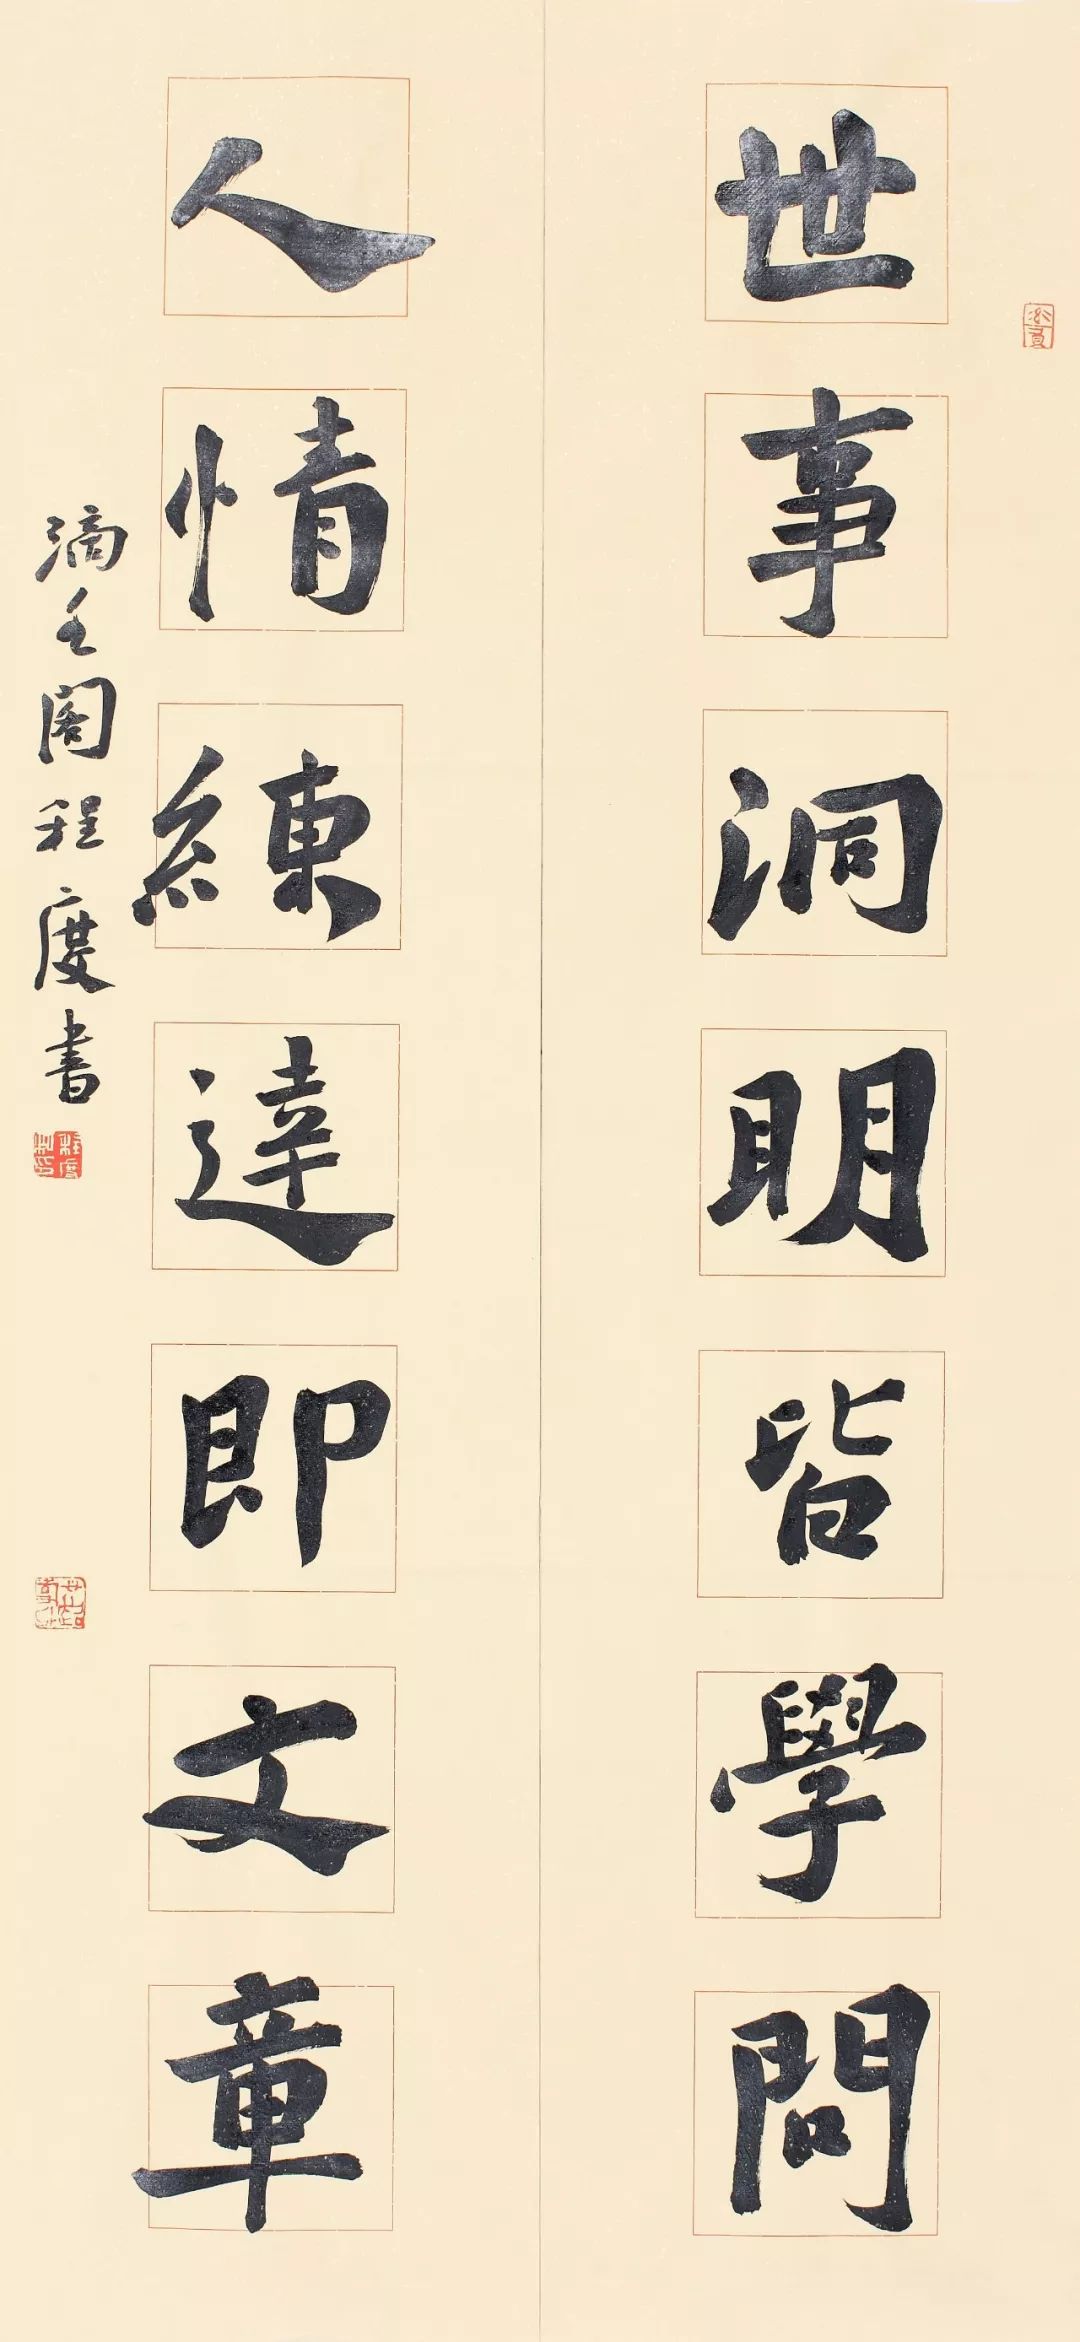 世事洞明皆學問
人情練達即文章
滴玉閣程度書